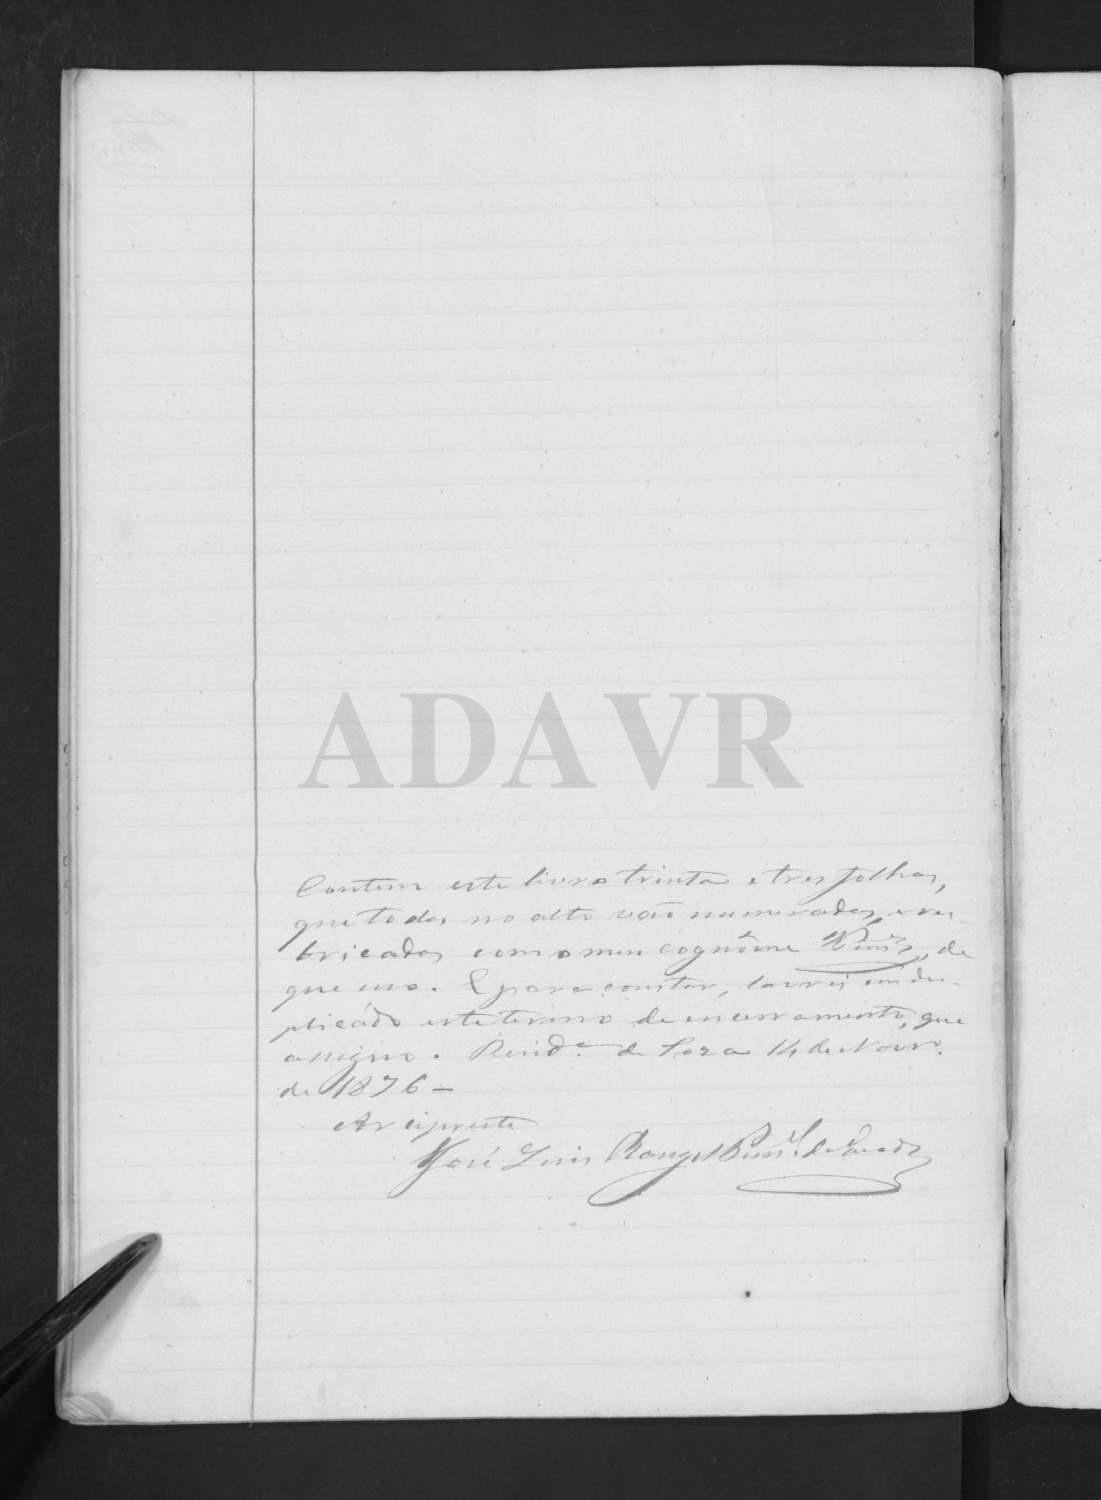 ADAVR
Contem este livro trinta e tres folhas,
que todas no alto vão numeradas, e ru-
bricadas com o meu cognôme de
que uso. E para constar, lavrei em du-
plicádo este termo de encerramento, que
assigno. Resid.ª de Soza 14 de Novr.
de 1876 —
Arcipreste
José Luis Rangel de